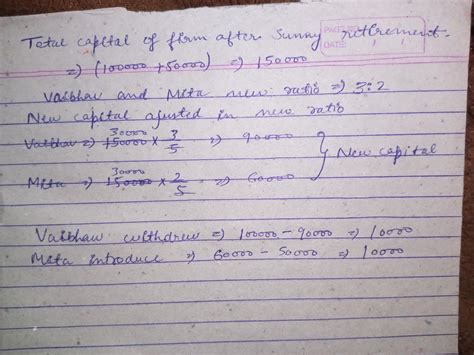 Total capital of firm after Sunny retirement.
PAGE NO.
DATE: / /
=> (100000 + 50000) => 150000
Vaibhav and Mita new ratio => 3:2
New capital ajusted in new ratio
30000
Vaibhav => 150000 × 3/5 => 90000
New capital
30000
Mita => 150000 × 2/5 => 60000
Vaibhav withdrew => 100000 - 90000 => 10000
Mita introduce => 60000 - 50000 => 10000